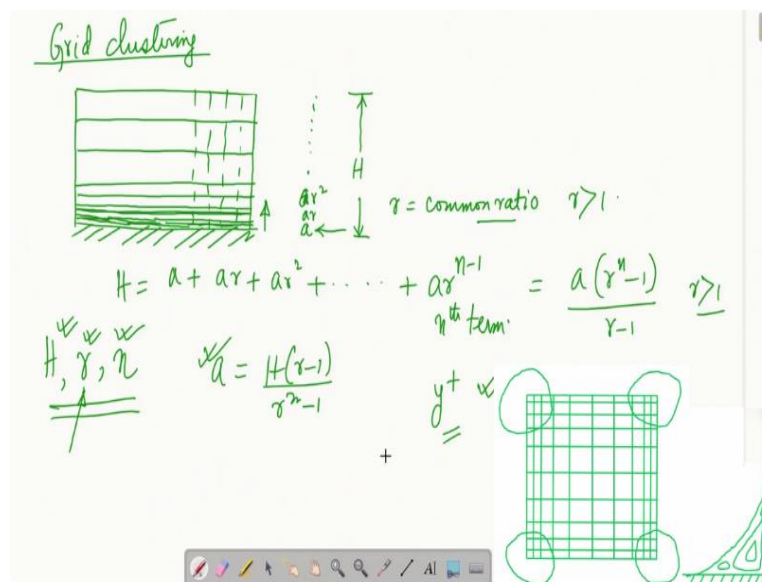 Grid clustering
H
ar²
ar
a
r = common ratio r>1.
H = a + ar + ar² + ..... + ar^{n-1} = a(r^n-1)/(r-1) r>1
n^{th} term.
H, r, n
a = H(r-1)/(r^n-1)
y+
AI